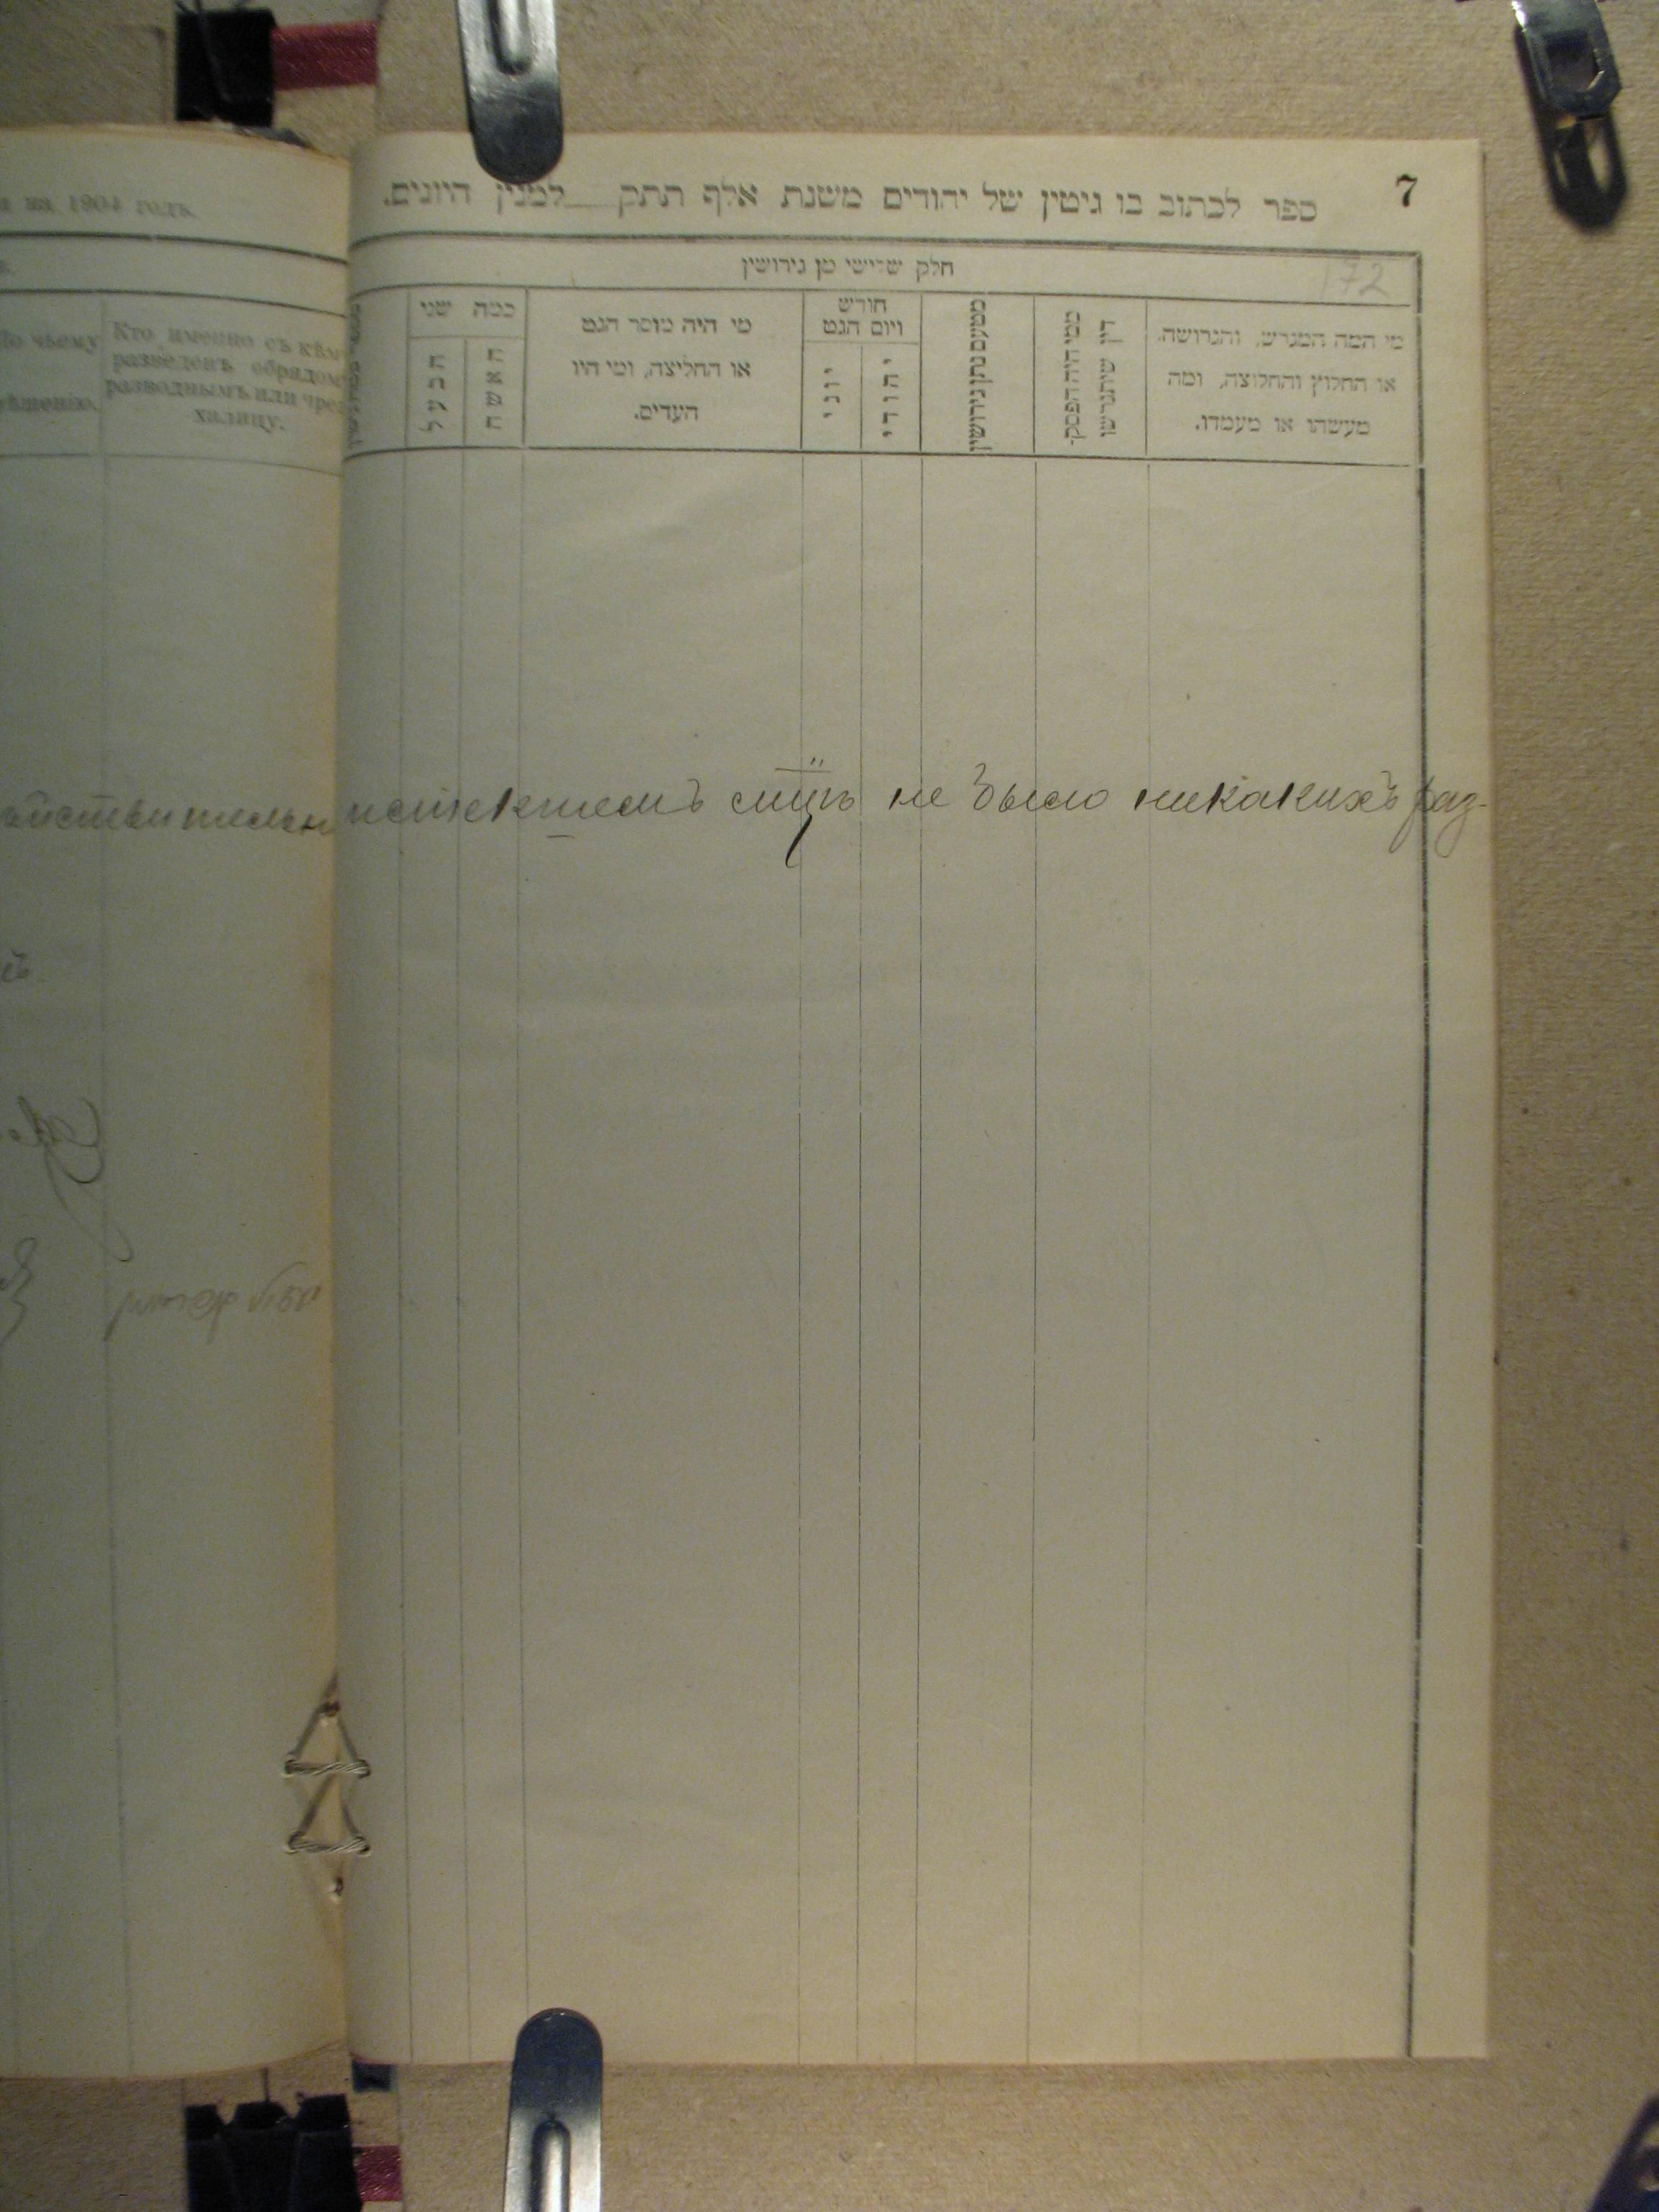 на 1904 годъ
Кто именно съ кѣмъ
разведенъ обрядомъ
разводнымъ или чрезъ
халицу.
7
ספר לכתוב בו גיטין של יהודים משנת אלף תתק למנין היונים.
172
חלק שלישי מן גירושין
מי המה המגרש, והגרושה,
או החלוץ והחלוצה, ומה
מעשהו או מעמדו.
ממי היה הפסק־
דין שיתגרשו
מטעם נתן גירושין
חודש
ויום הגט
יהודי
יוני
מי היה מוסר הגט
או החליצה, ומי היו
העדים.
כמה שני
האשה
הבעל
истекшемъ не было никакихъ раз-